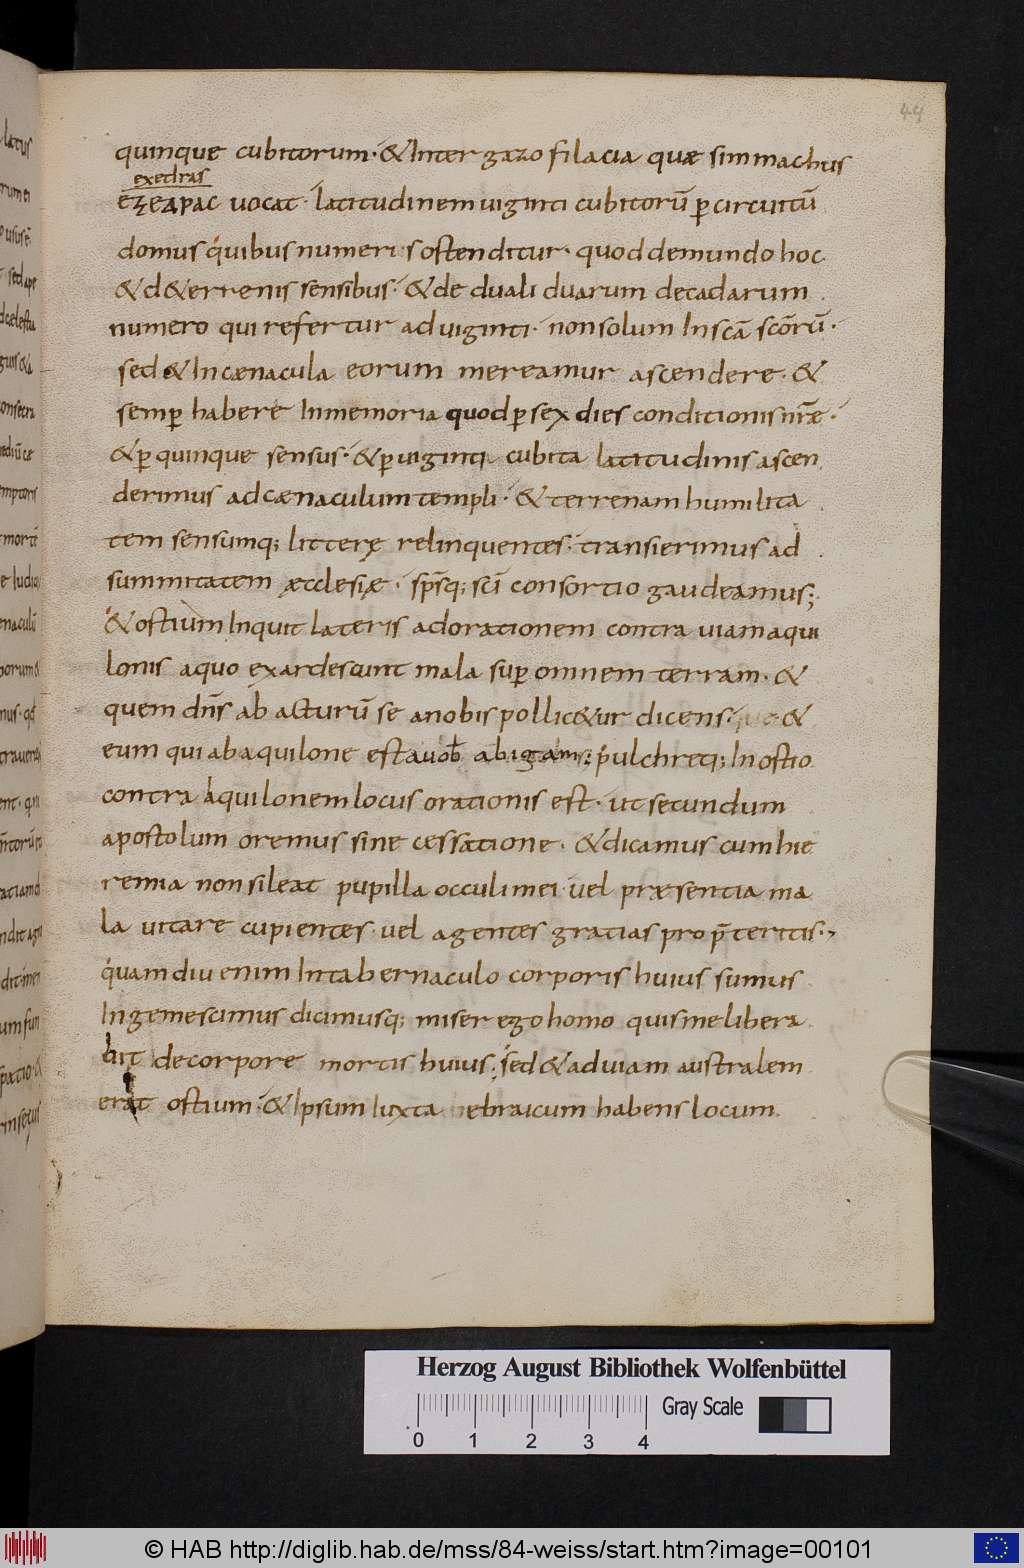 44
quinque cubitorum· & Inter gazofilacia quae simmachus
exedras
εξεδρας uocat· latitudinem uiginti cubitorū p circuitū
domus quibus numeris ostenditur· quod de mundo hoc
& d& errenis sensibus· & de duali duarum decadarum
numero qui refertur ad uiginti· non solum In scā scōrū·
sed & In caenacula eorum mereamur ascendere· &
semp habere In memoria quod p sex dies conditionis nr̄ae·
& p quinque sensus· & p uiginti cubita latitudinis ascen
derimus ad caenaculum templi· & terrenam humilita
tem sensumq; litterę relinquentes· transierimus ad
summitatem aecclesiae· sp̄sq; sc̄i consortio gaudeamus;
& ostium Inquit lateris ad orationem contra uiam aqui
lonis a quo exardescunt mala sup omnem terram· &
quem dn̄s ab acturū se a nobis pollic&ur dicens· &
eum qui ab aquilone est a uob abigam; pulchreq; In ostio
contra aquilonem locus orationis est· ut secundum
apostolum oremus sine cessatione· & dicamus cum hie
remia non sileat pupilla occuli mei· uel praesentia ma
la uitare cupientes· uel agentes gratias pro p̄teritis·
quam diu enim In tabernaculo corporis huius sumus
Ingemescimus dicimusq; miser ego homo quis me libera
bit de corpore mortis huius; sed & ad uiam australem
erat ostium· & Ipsum iuxta hebraicum habens locum
Herzog August Bibliothek Wolfenbüttel
Gray Scale
0 1 2 3 4
© HAB http://diglib.hab.de/mss/84-weiss/start.htm?image=00101